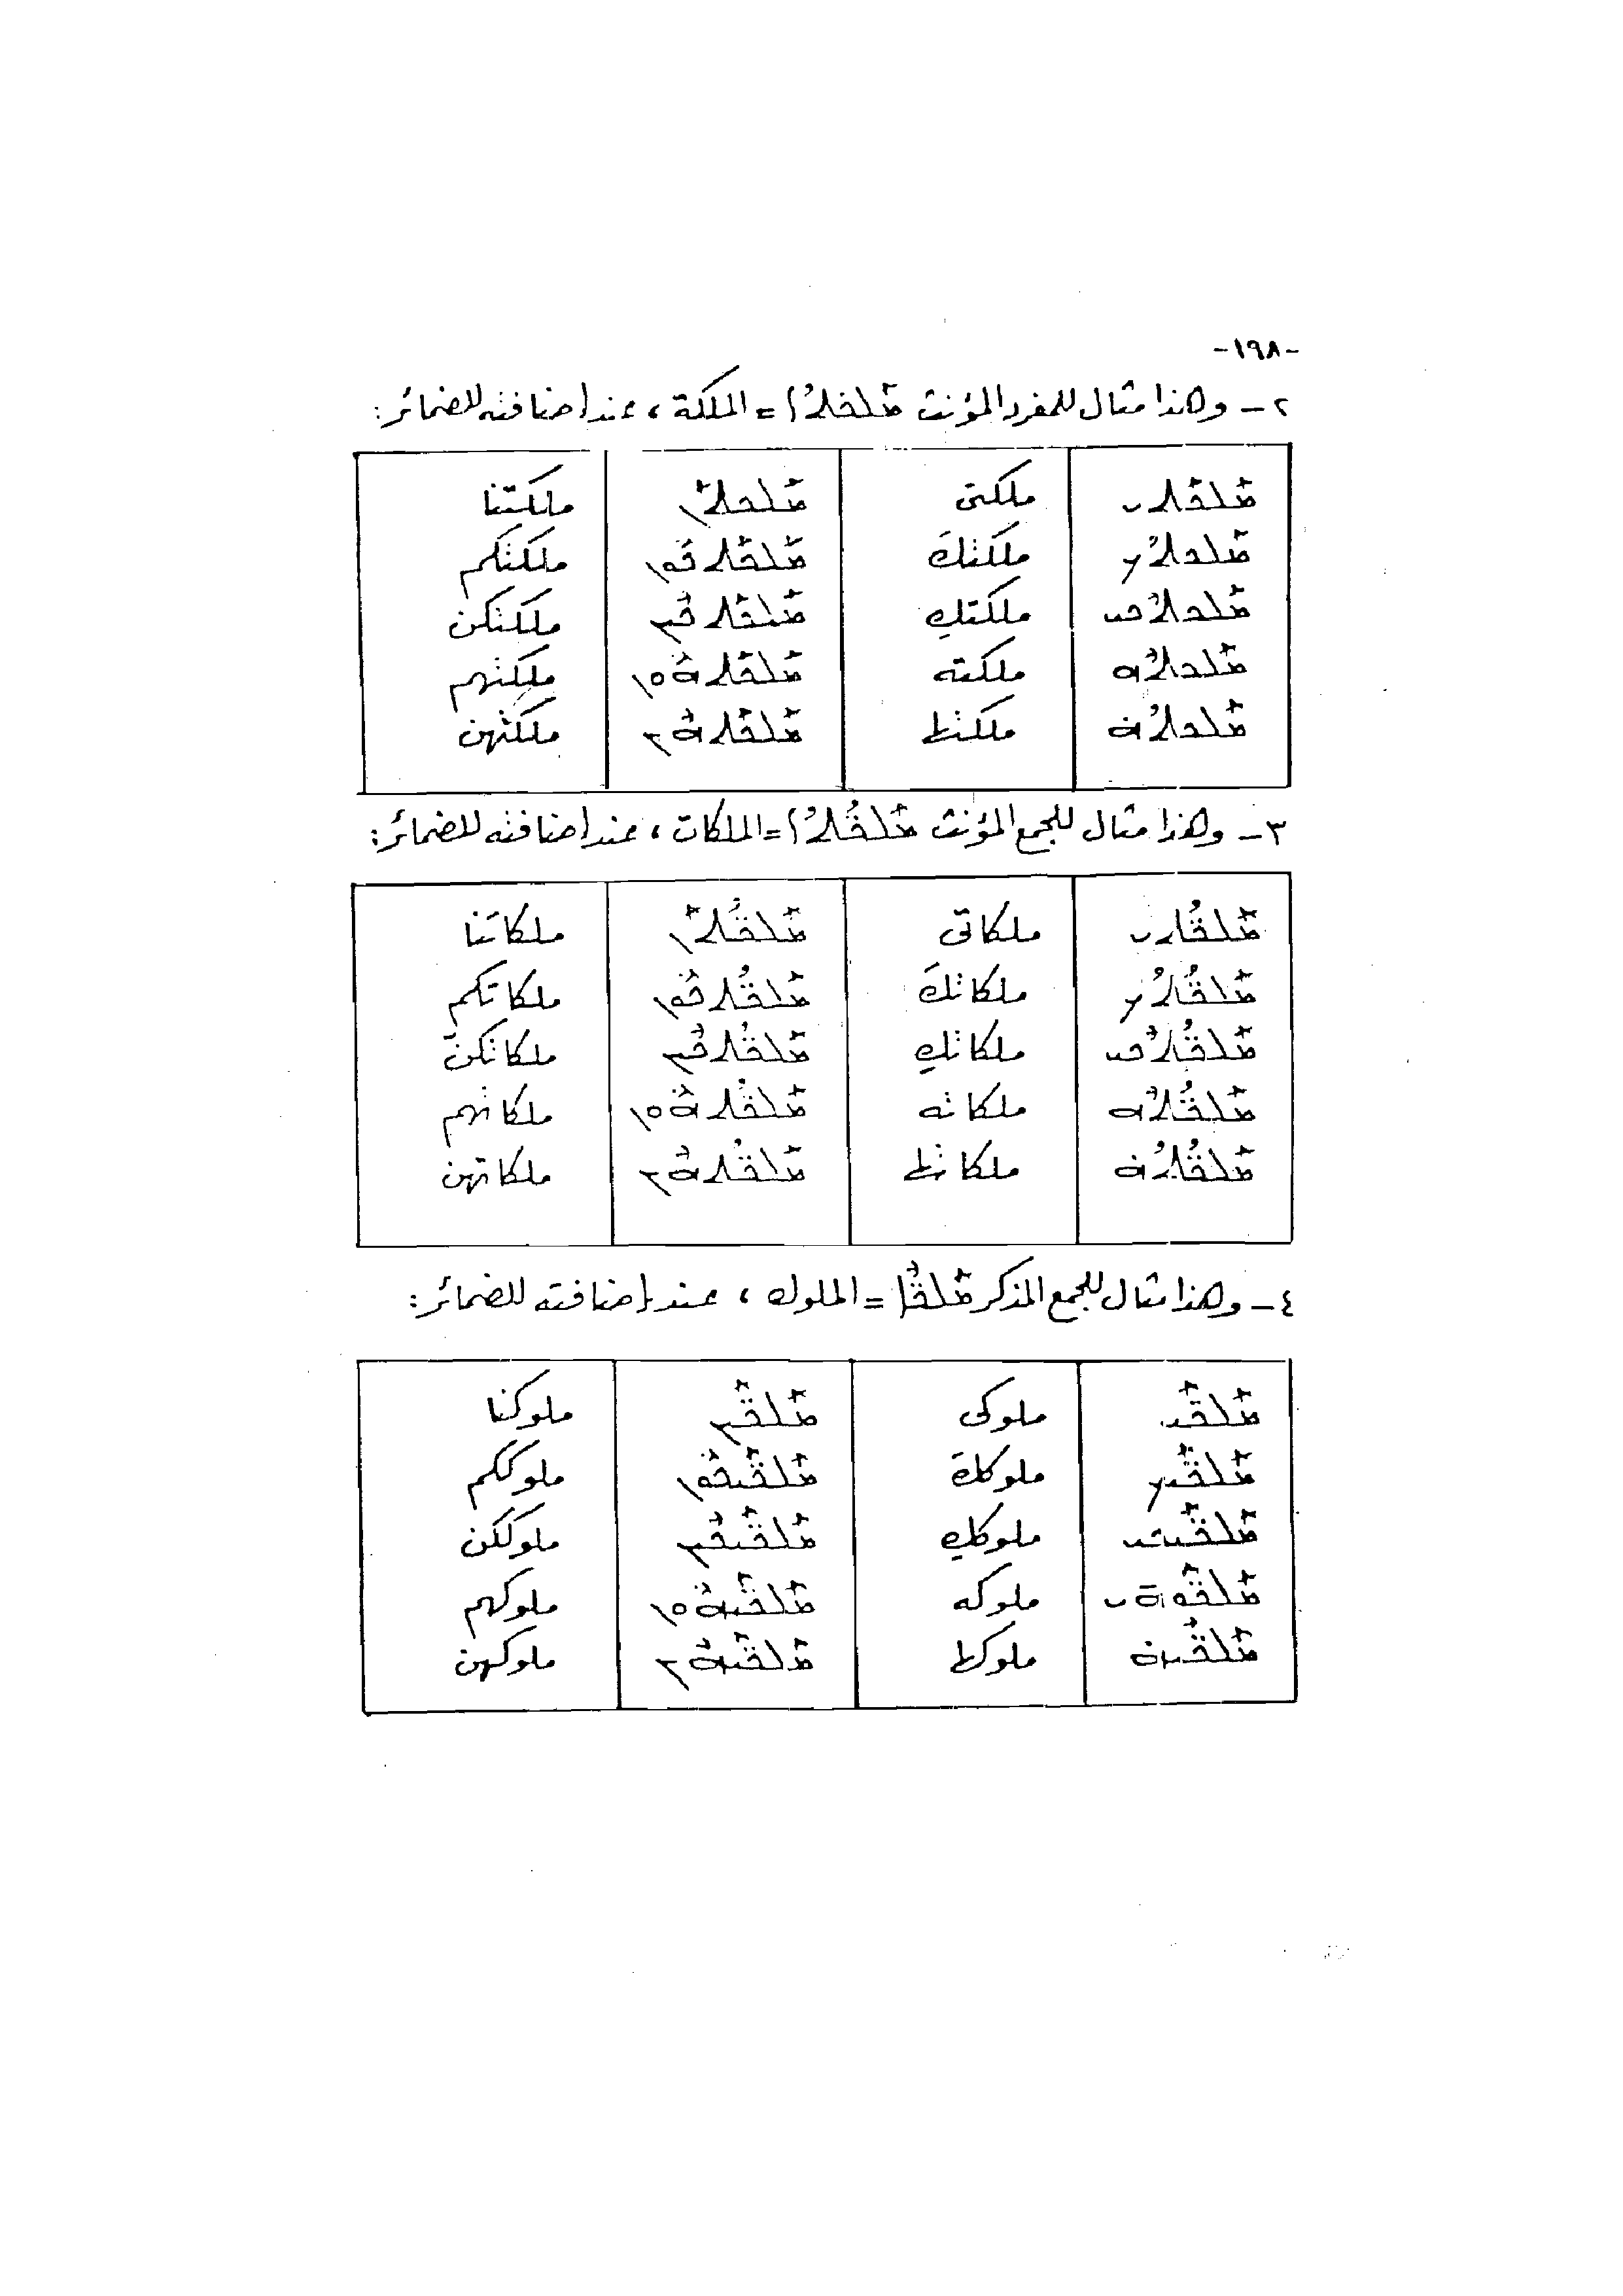 -١٩٨-
٢- وهذا مثال للمفرد المؤنث ܡܰܠܟܬܳܐ = الملكة، عند إضافته للضمائر:
ܡܰܠܟܰܬܝ ملكتي ܡܰܠܟܬܰܢ ملكتنا
ܡܰܠܟܬܳܟ ملكتكَ ܡܰܠܟܰܬܟܽܘܢ ملكتكم
ܡܰܠܟܬܶܟܝ ملكتكِ ܡܰܠܟܰܬܟܶܝܢ ملكتكن
ܡܰܠܟܬܶܗ ملكته ܡܰܠܟܰܬܗܽܘܢ ملكتهم
ܡܰܠܟܬܳܗ̇ ملكتها ܡܰܠܟܰܬܗܶܝܢ ملكتهن
٣- وهذا مثال للجمع المؤنث ܡܰܠܟܳܬܳܐ = الملكات، عند إضافته للضمائر:
ܡܰܠܟܳܬܝ ملكاتي ܡܰܠܟܳܬܰܢ ملكاتنا
ܡܰܠܟܳܬܳܟ ملكاتكَ ܡܰܠܟܳܬܟܽܘܢ ملكاتكم
ܡܰܠܟܳܬܶܟܝ ملكاتكِ ܡܰܠܟܳܬܟܶܝܢ ملكاتكنّ
ܡܰܠܟܳܬܶܗ ملكاته ܡܰܠܟܳܬܗܽܘܢ ملكاتهم
ܡܰܠܟܳܬܳܗ̇ ملكاتها ܡܰܠܟܳܬܗܶܝܢ ملكاتهن
٤- وهذا مثال للجمع المذكر ܡܰܠܟܶܐ = الملوك، عند إضافته للضمائر:
ܡܰܠܟܰܝ ملوكي ܡܰܠܟܰܝܢ ملوكنا
ܡܰܠܟܰܝܟ ملوككَ ܡܰܠܟܰܝܟܽܘܢ ملوككم
ܡܰܠܟܰܝܟܝ ملوككِ ܡܰܠܟܰܝܟܶܝܢ ملوككن
ܡܰܠܟܰܘܗܝ ملوكه ܡܰܠܟܰܝܗܽܘܢ ملوكهم
ܡܰܠܟܶܝܗ̇ ملوكها ܡܰܠܟܰܝܗܶܝܢ ملوكهن